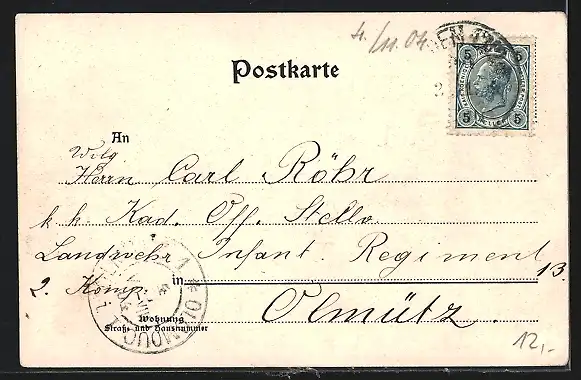 4./11.04
Postkarte
5 5
5 5
An
Wilg
Herrn Carl Röhr
k. k. Kad. Off. Stellv.
Landwehr Infant. Regiment 13.
2. Komp. in
Olmütz.
Wohnung
Straße und Hausnummer
1 * OLMOUC
12,-